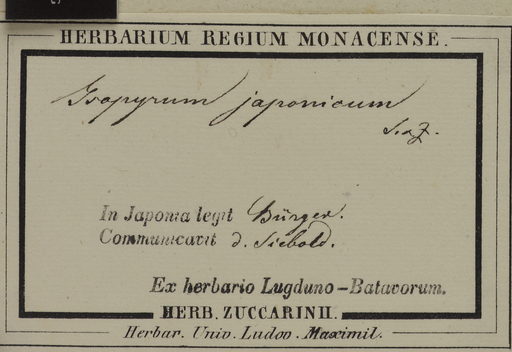 HERBARIUM REGIUM MONACENSE.
Isopyrum japonicum
S. & Z.
In Japonia legit Bürger.
Communicavit d. Siebold.
Ex herbario Lugduno-Batavorum.
HERB. ZUCCARINII.
Herbar. Univ. Ludov. Maximil.